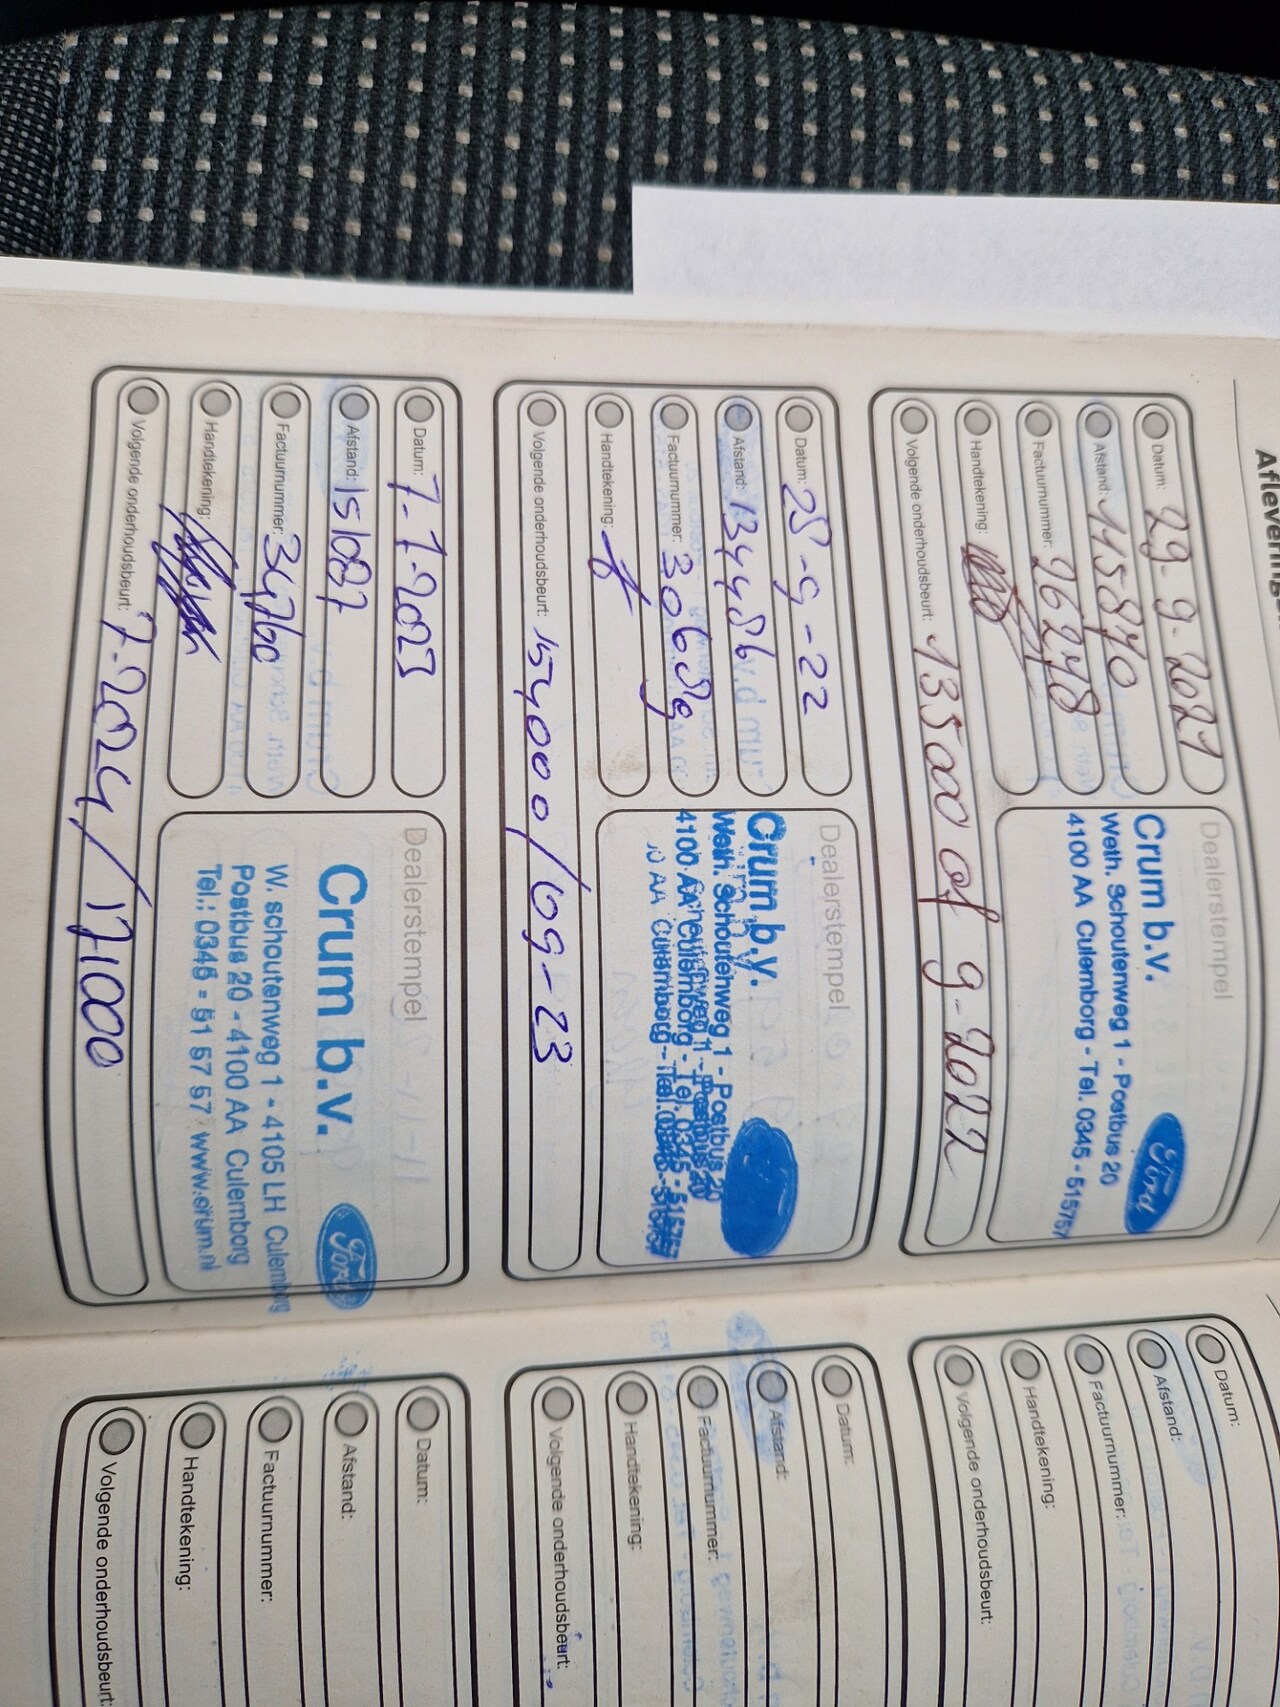 Aflevering
Datum: 29-9-2021
Afstand: 115870
Factuurnummer: 26248
Handtekening:
Volgende onderhoudsbeurt: 135000 of 9-2022
Dealerstempel
Crum b.v.
Weth. Schoutenweg 1 - Postbus 20
4100 AA Culemborg - Tel. 0345 - 515757
Ford
Datum: 28-9-22
Afstand: 134486
Factuurnummer: 30689
Handtekening:
Volgende onderhoudsbeurt: 154000/09-23
Dealerstempel
Crum b.v.
Weth. Schoutenweg 1 - Postbus 20
4100 AA Culemborg - Tel. 0345 - 515757
Datum: 7-7-2023
Afstand: 151087
Factuurnummer: 34760
Handtekening:
Volgende onderhoudsbeurt: 7-2024/171000
Dealerstempel
Crum b.v.
W. schoutenweg 1 - 4105 LH Culemborg
Postbus 20 - 4100 AA Culemborg
Tel.: 0345 - 51 57 57 www.crum.nl
Ford
Datum:
Afstand:
Factuurnummer:
Handtekening:
Volgende onderhoudsbeurt:
Datum:
Afstand:
Factuurnummer:
Handtekening:
Volgende onderhoudsbeurt:
Datum:
Afstand:
Factuurnummer:
Handtekening:
Volgende onderhoudsbeurt: